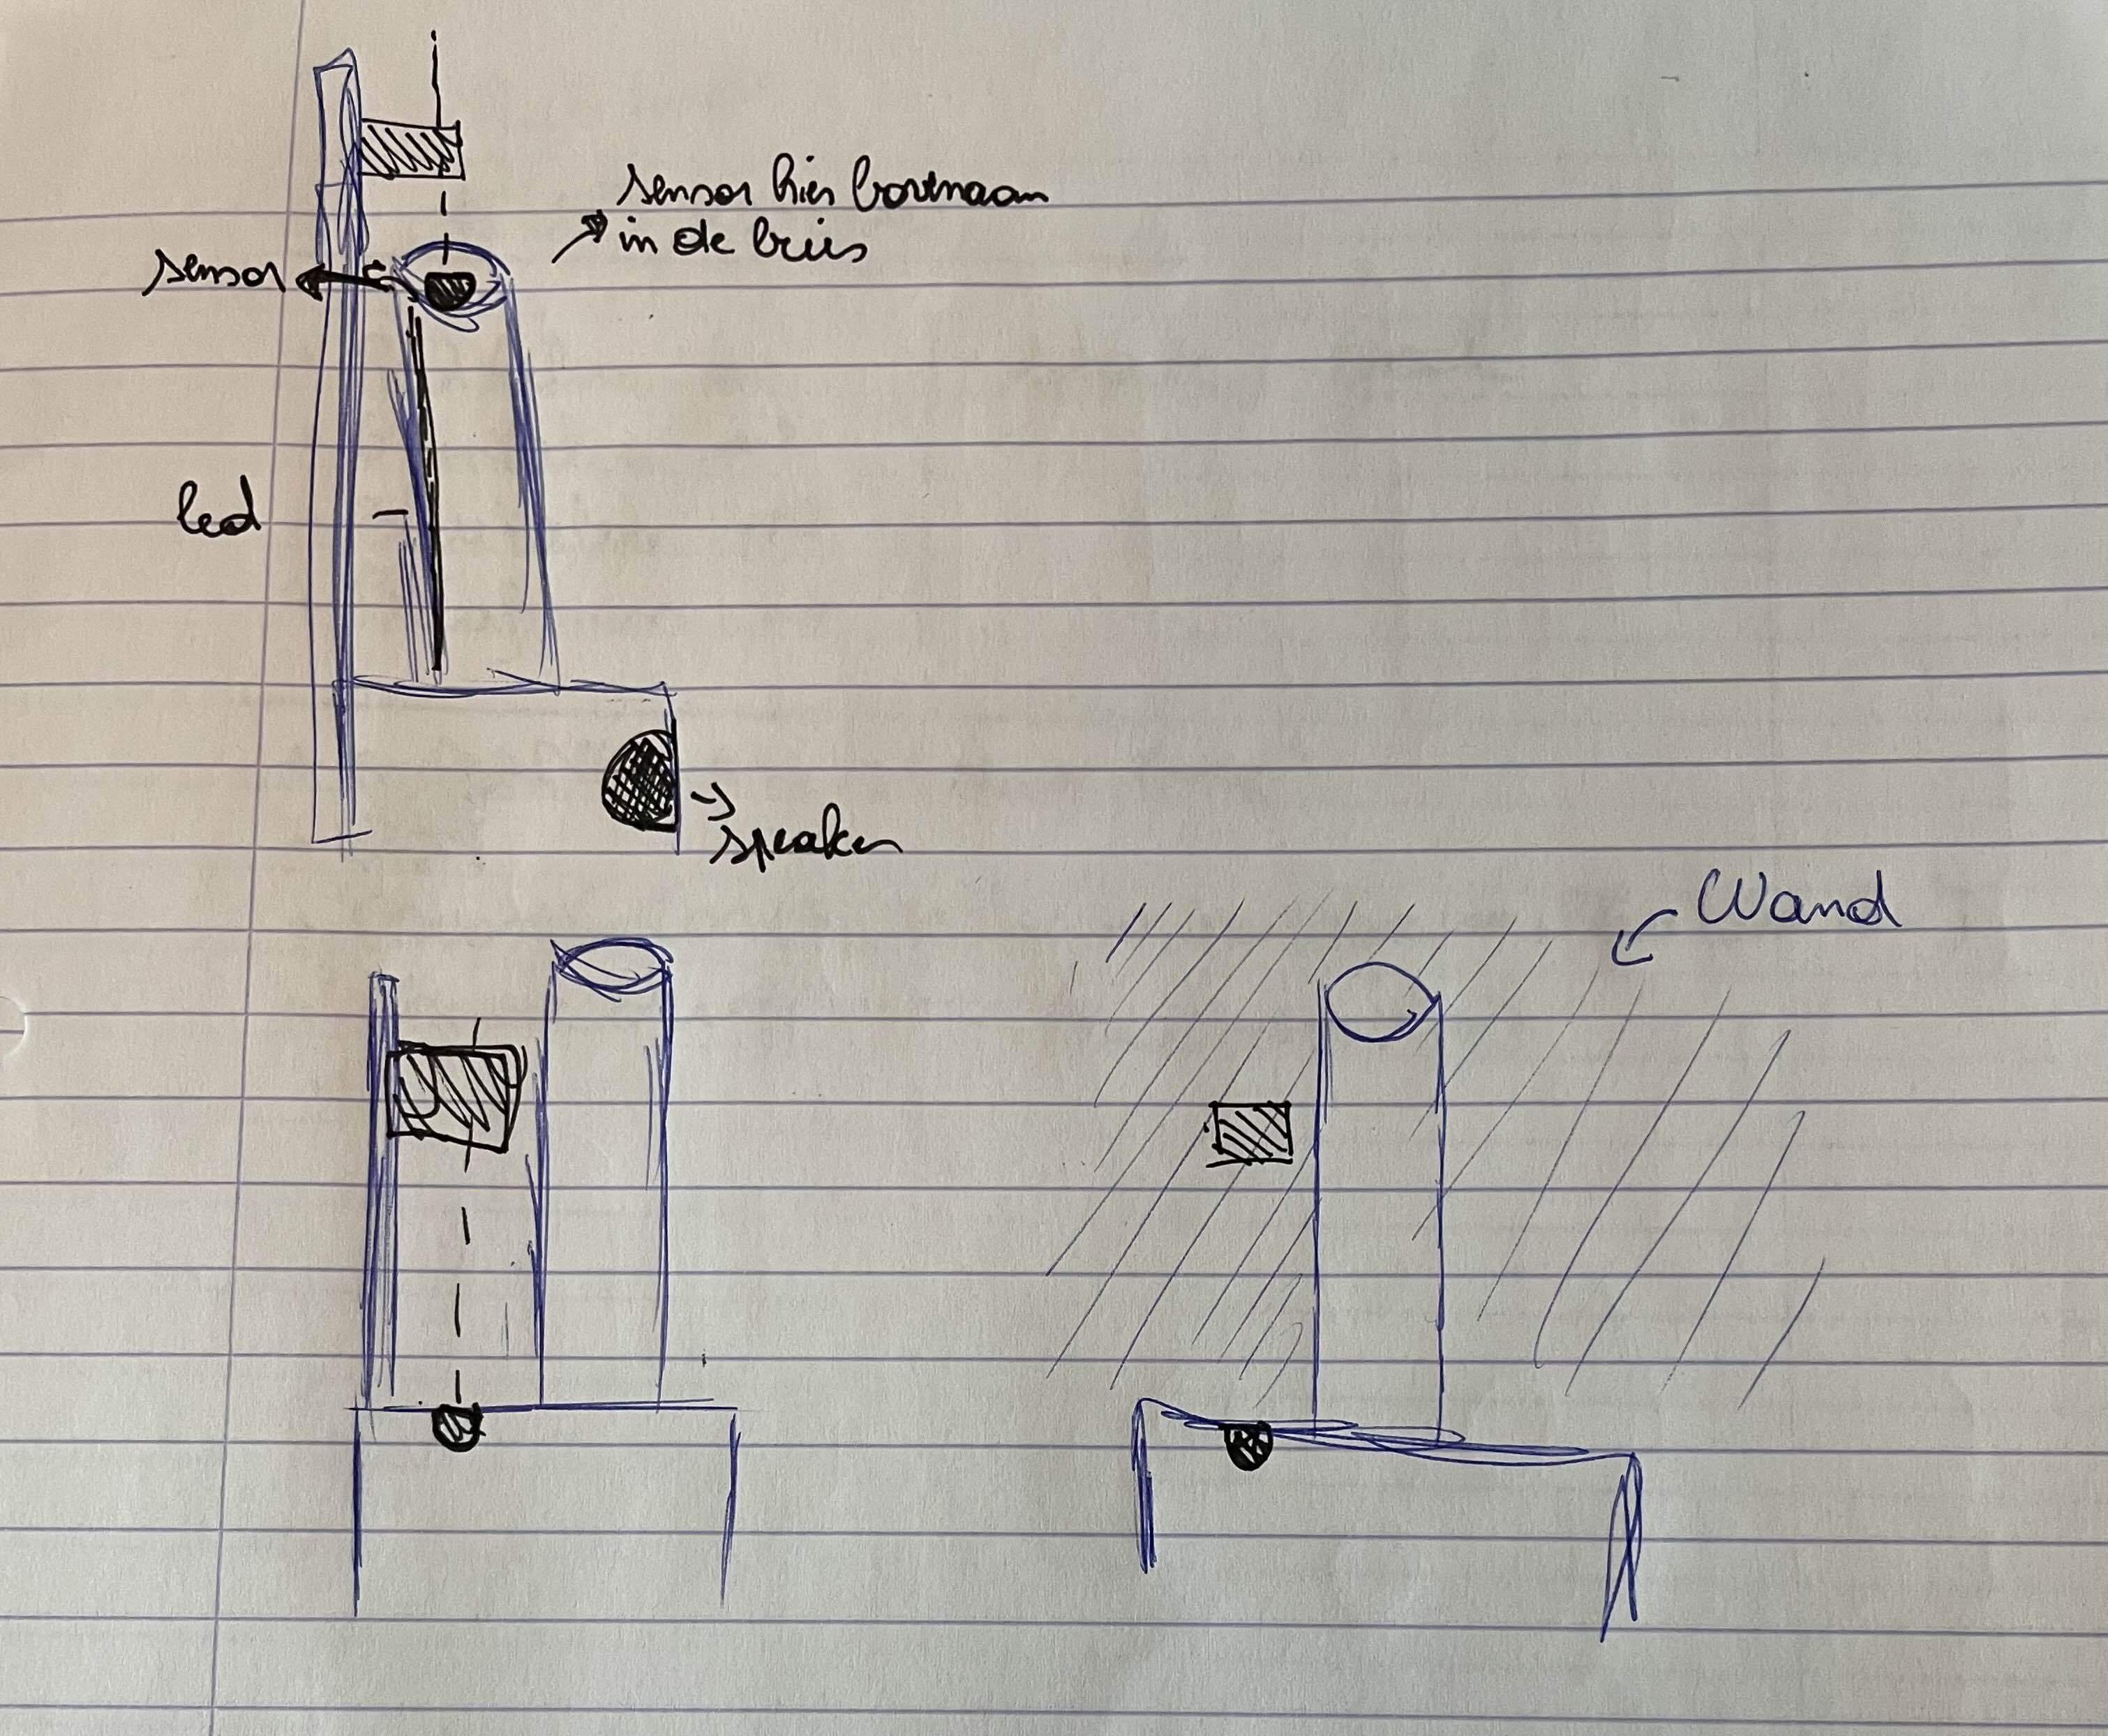 sensor hier bovenaan
in de buis
sensor
led
speaker
Wand